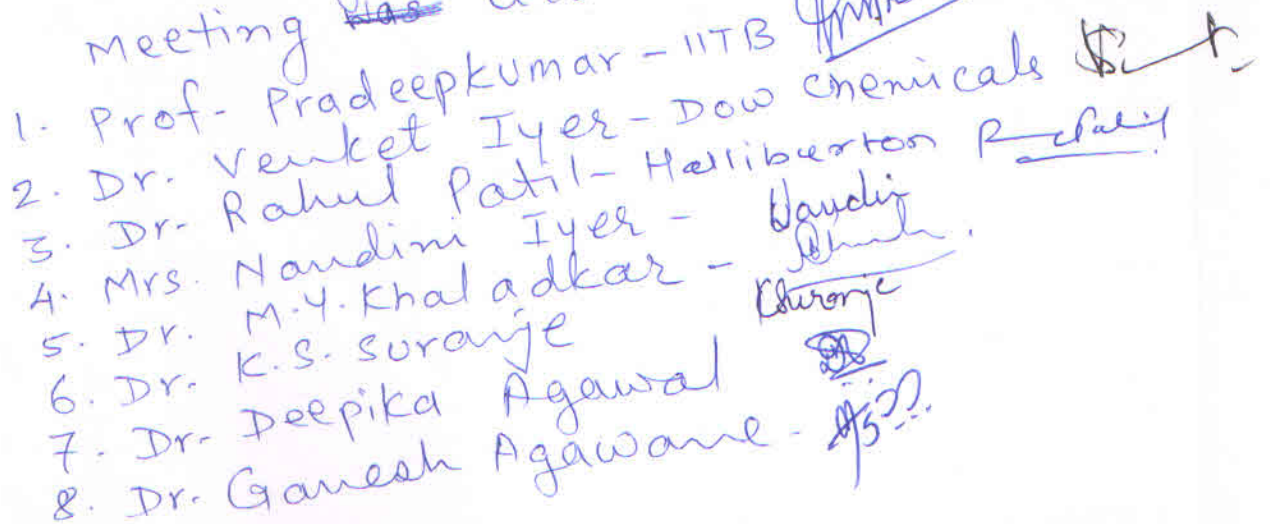 Meeting was
1. Prof- Pradeepkumar - IITB
2. Dr. Venket Iyer - Dow Chemicals
3. Dr- Rahul Patil - Halliburton RPatil
4. Mrs. Nandini Iyer - Nandini
5. Dr. M.Y. Khaladkar -
6. Dr. K.S. Suranje KSuranje
7. Dr- Deepika Agawal
8. Dr- Ganesh Agawane -